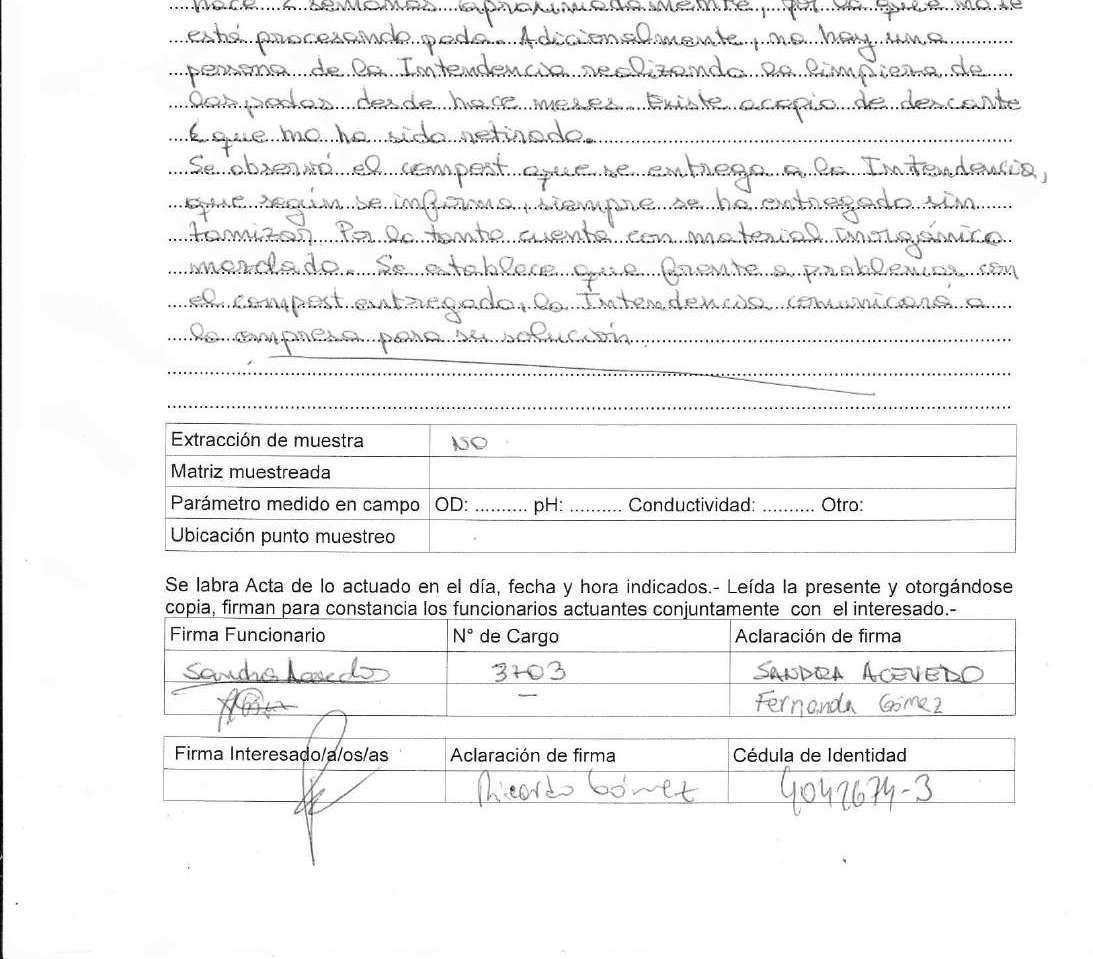 hace 2 semanas aproximadamente, por lo que no se
está procesando poda. Adicionalmente, no hay una
persona de la Intendencia realizando la limpieza de
las podas desde hace meses. Existe acopio de descarte
que no ha sido retirado.
Se observó el compost que se entrega a la Intendencia,
que según se informa, siempre se ha entregado sin
tamizar. Por lo tanto cuenta con material inorgánico
mezclado. Se establece que frente a problemas con
el compost entregado, la Intendencia comunicará a
la empresa para su solución.
Extracción de muestra NO
Matriz muestreada
Parámetro medido en campo OD: .......... pH: .......... Conductividad: .......... Otro:
Ubicación punto muestreo
Se labra Acta de lo actuado en el día, fecha y hora indicados.- Leída la presente y otorgándose
copia, firman para constancia los funcionarios actuantes conjuntamente con el interesado.-
Firma Funcionario N° de Cargo Aclaración de firma
Sandra Acevedo 3703 SANDRA ACEVEDO
— Fernanda Gómez
Firma Interesado/a/os/as Aclaración de firma Cédula de Identidad
Ricardo Gómez 4042674-3